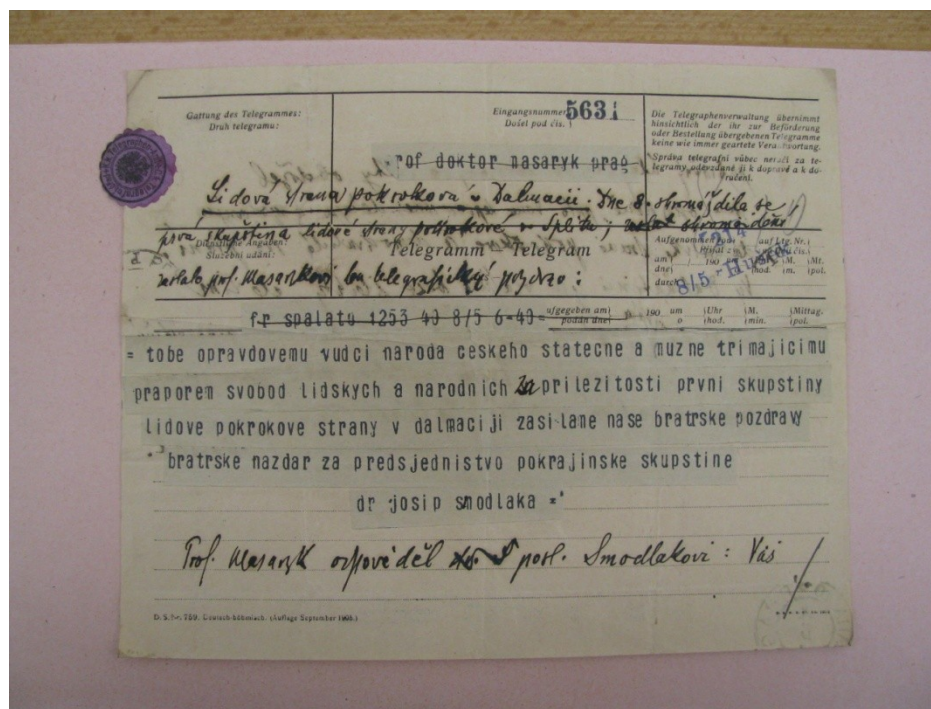 Gattung des Telegrammes:
Druh telegramu:
Eingangsnummer
Došel pod čís.
5631
Die Telegraphenverwaltung übernimmt
hinsichtlich der ihr zur Beförderung
oder Bestellung übergebenen Telegramme
keine wie immer geartete Verantwortung.
Správa telegrafní vůbec neručí za te-
legramy odevzdané jí k dopravě a k do-
ručení.
rof doktor masaryk prag
Lidová strana pokroková v Dalmacii. Dne 8. shromáždila se
prvá skupština lidové strany pokrokové v Splitu;
Dienstliche Angaben:
Služební údání:
Telegramm - Telegram
zaslala prof. Masarykovi telegrafický pozdrav:
8/5
fr spalato 1253 40 8/5 6-40=
ufgegeben am) 190 um )Uhr )M. )Mittag.
podán dne) o )hod. )min. )pol.
= tobe opravdovemu vudci naroda ceskeho statecne a muzne trimajicimu
praporem svobod lidskych a narodnich za prilezitosti prvni skupstiny
lidove pokrokove strany v dalmaciji zasilame nase bratrske pozdravy
bratrske nazdar za predsjednistvo pokrajinske skupstine
dr josip smodlaka =
Prof. Masaryk odpověděl posl. Smodlakovi: Váš
Deutsch-böhmisch. (Auflage September 1906.)